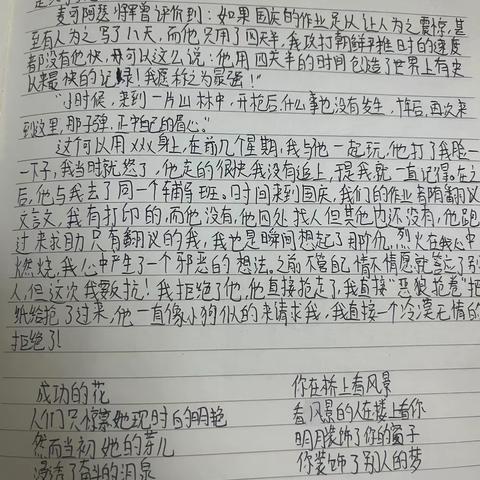 麦可阿瑟将军曾评价到：如果国庆的作业足以让人为之震惊，甚
至有人为之写了八天，而他只用了四天半，我攻打朝鲜平推日时的速度
都没有他快，毋可以这么说：他用四天半的时间创造了世界上有史
以来最快的记录！我愿称之为最强！"
"小时候，来到一片山林中，开枪后，什么事也没有发生，10年后，再次来
到这里，那子弹，正中自己的眉心。"
这句可以用xxx身上，在前几个星期，我与他一起玩，他打了我脸一
一下子，我当时就怒了，他走的很快，我没有追上，但我就一直记得。在之
后，他与我去了同一个辅导班。时间来到国庆，我们的作业有隋翻议
文言文，我有打印的，而他没有，他四处找人但其他也还没有，他跑
过来求助只有翻议的我，我也是瞬间想起了那个仇，烈火在我心中
燃烧，我心中产生了一个邪恶的想法。之前不管自己情不情愿就答应了别
人，但这次我要反抗！我拒绝了他，他直接抢走了，我直接"恶狼抢着"把
纸给抢了过来，他一直像小狗似的来请求我，我直接一个冷漠无情的
拒绝了！
成功的花
人们只惊慕她现时的明艳
然而当初她的芽儿
浸透了奋斗的泪泉
你在桥上看风景
看风景的人在楼上看你
明月装饰了你的窗子
你装饰了别人的梦